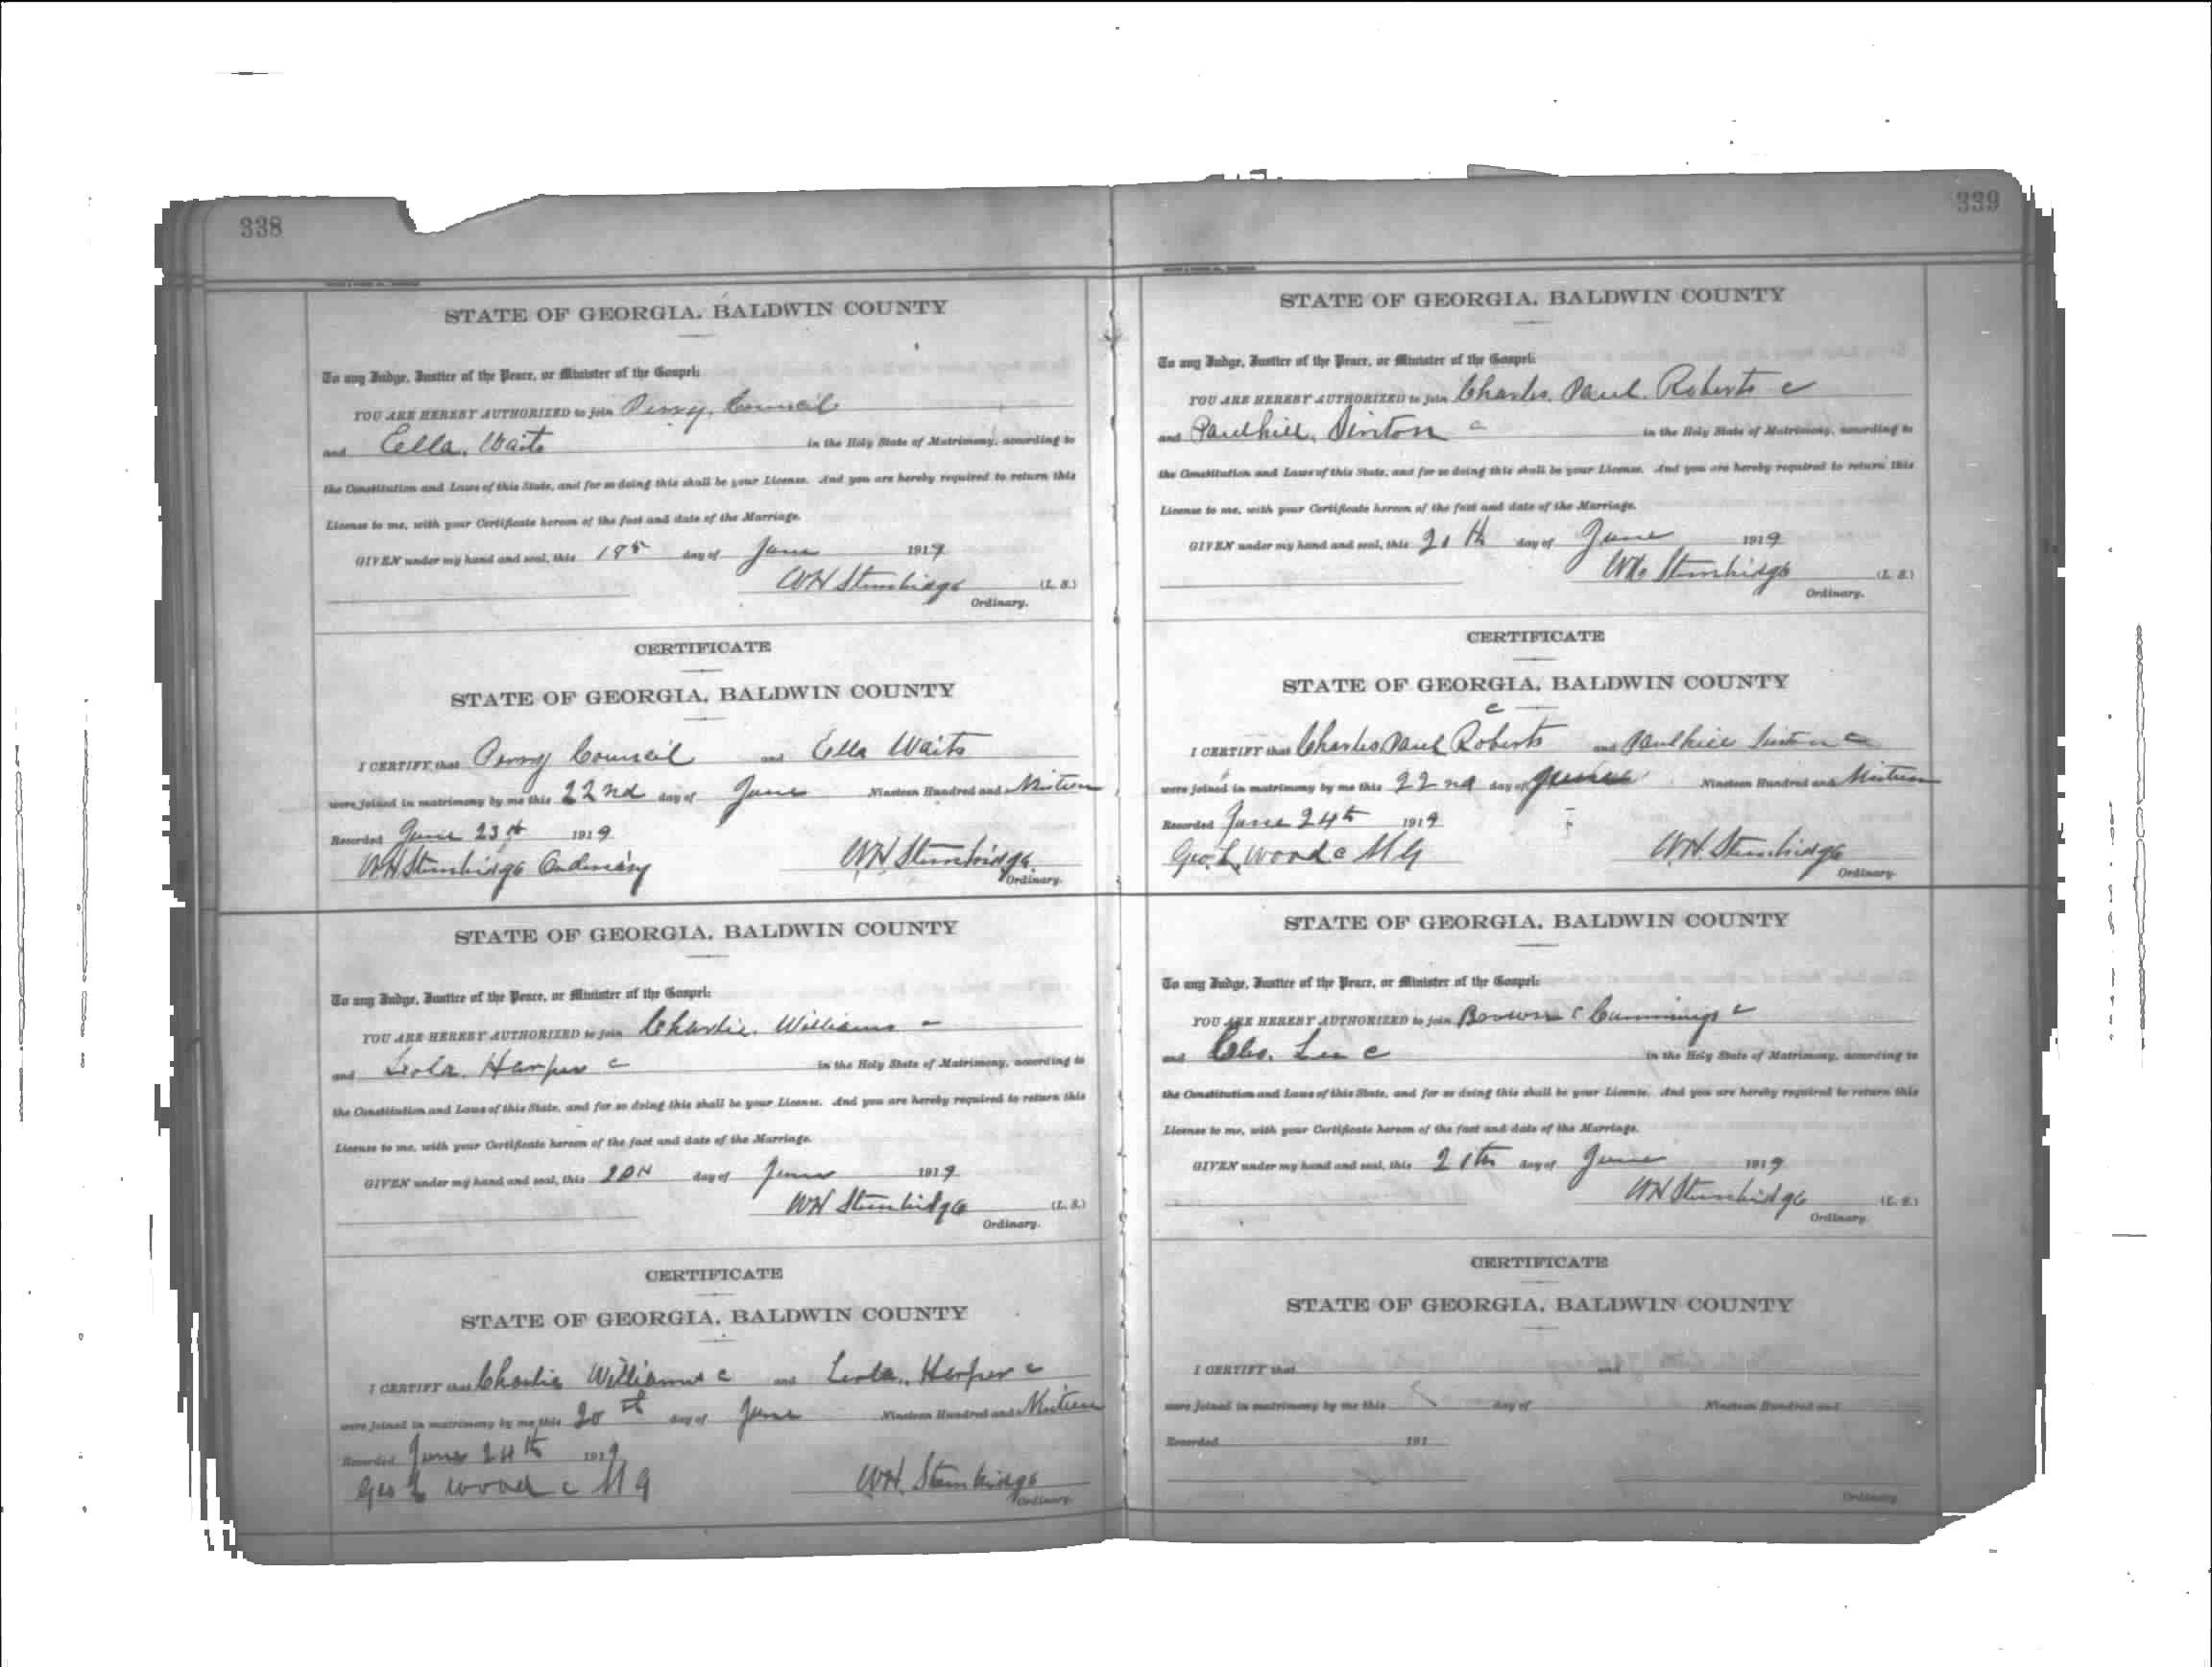 338
STATE OF GEORGIA, BALDWIN COUNTY
To any Judge, Justice of the Peace, or Minister of the Gospel:
YOU ARE HEREBY AUTHORIZED to join Perry, Council
and Eella, Waits in the Holy State of Matrimony, according to
the Constitution and Laws of this State, and for so doing this shall be your License. And you are hereby required to return this
License to me, with your Certificate hereon of the fact and date of the Marriage.
GIVEN under my hand and seal, this day of June 1919
WH Stembridge (L. S.)
Ordinary.
CERTIFICATE
STATE OF GEORGIA, BALDWIN COUNTY
I CERTIFY that Perry Council and Ella Waits
were joined in matrimony by me this 22nd day of June Nineteen Hundred and Nineteen
Recorded June 23 1919
WH Stembridge Ordinary WH Stembridge
Ordinary.
STATE OF GEORGIA, BALDWIN COUNTY
To any Judge, Justice of the Peace, or Minister of the Gospel:
YOU ARE HEREBY AUTHORIZED to join Charlie, Williams c
and Leola, Harper c in the Holy State of Matrimony, according to
the Constitution and Laws of this State, and for so doing this shall be your License. And you are hereby required to return this
License to me, with your Certificate hereon of the fact and date of the Marriage.
GIVEN under my hand and seal, this 20th day of June 1919
WH Stembridge (L. S.)
Ordinary.
CERTIFICATE
STATE OF GEORGIA, BALDWIN COUNTY
I CERTIFY that Charlie Williams c and Leola, Harper c
were joined in matrimony by me this 20th day of June Nineteen Hundred and Nineteen
Recorded June 24th 1919
Geo L Wood c M G WH. Stembridge
Ordinary.
339
STATE OF GEORGIA, BALDWIN COUNTY
To any Judge, Justice of the Peace, or Minister of the Gospel:
YOU ARE HEREBY AUTHORIZED to join Charles, Paul, Roberts c
and Paulhill, c in the Holy State of Matrimony, according to
the Constitution and Laws of this State, and for so doing this shall be your License. And you are hereby required to return this
License to me, with your Certificate hereon of the fact and date of the Marriage.
GIVEN under my hand and seal, this 21th day of June 1919
WH Stembridge (L. S.)
Ordinary.
CERTIFICATE
STATE OF GEORGIA, BALDWIN COUNTY
c
I CERTIFY that Charles Paul Roberts and Paulhill c
were joined in matrimony by me this 22nd day of June Nineteen Hundred and Nineteen
Recorded June 24th 1919
Geo. L. Wood c M G WH. Stembridge
Ordinary.
STATE OF GEORGIA, BALDWIN COUNTY
To any Judge, Justice of the Peace, or Minister of the Gospel:
YOU ARE HEREBY AUTHORIZED to join Brown c Cummings c
and Cleo. Lee c in the Holy State of Matrimony, according to
the Constitution and Laws of this State, and for so doing this shall be your License. And you are hereby required to return this
License to me, with your Certificate hereon of the fact and date of the Marriage.
GIVEN under my hand and seal, this 21th day of June 1919
WH Stembridge (L. S.)
Ordinary.
CERTIFICATE
STATE OF GEORGIA, BALDWIN COUNTY
I CERTIFY that and
were joined in matrimony by me this day of Nineteen Hundred and
Recorded 191
Ordinary.